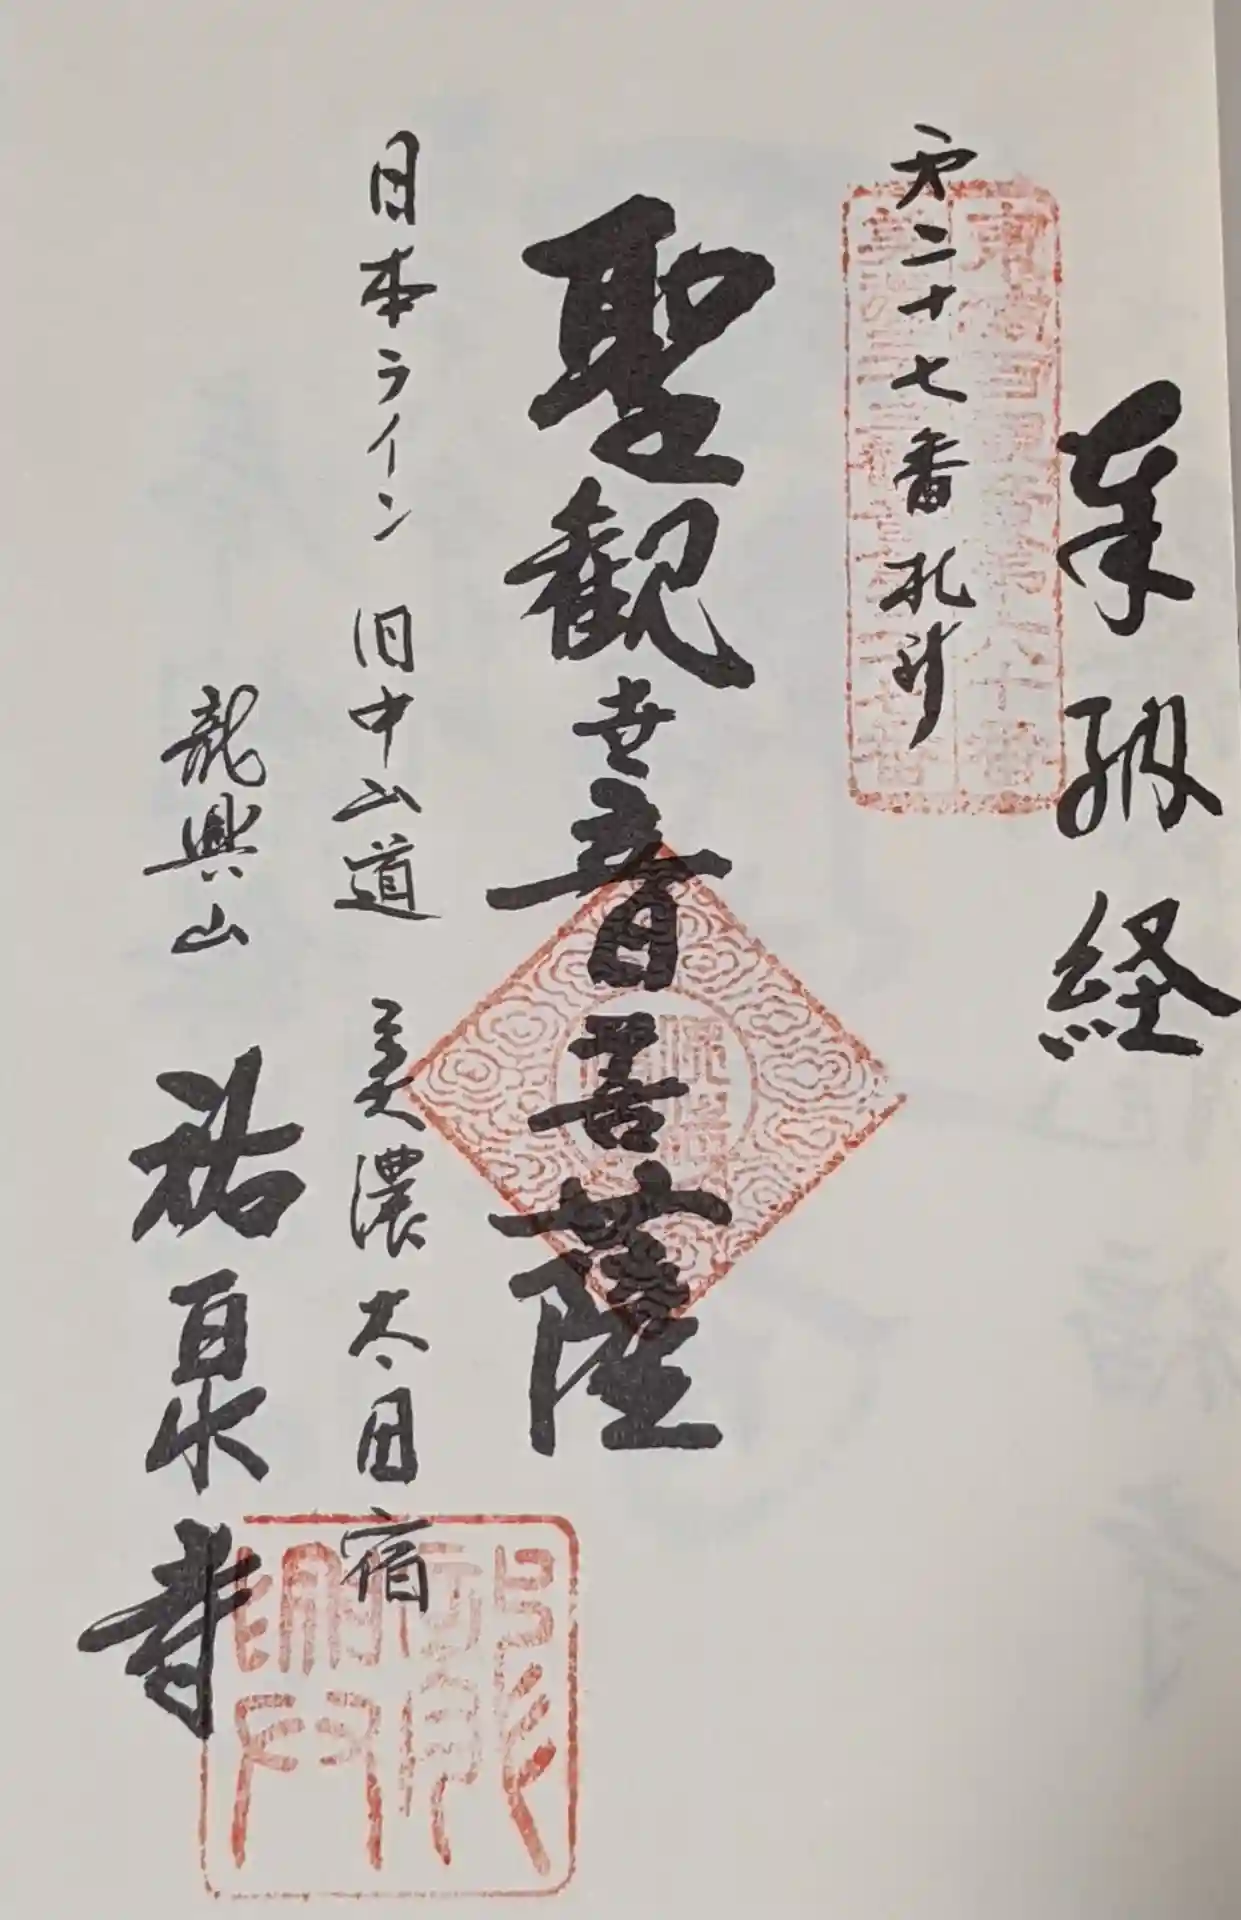 奉納経
第二十七番札所
聖観世音菩薩
日本ライン 旧中山道 美濃太田宿
龍興山 祐泉寺